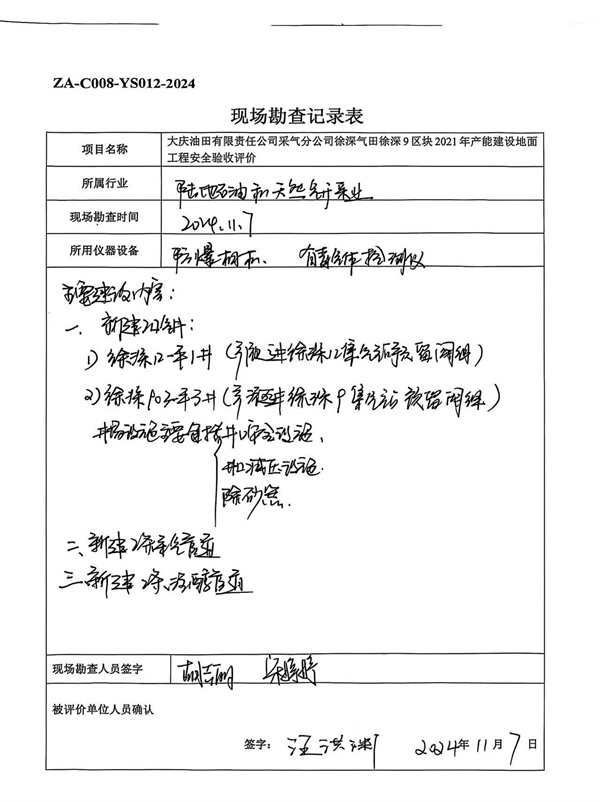 ZA-C008-YS012-2024
现场勘查记录表
项目名称
大庆油田有限责任公司采气分公司徐深气田徐深9区块2021年产能建设地面
工程安全验收评价
所属行业
陆地石油和天然气开采业
现场勘查时间
2024.11.7
所用仪器设备
防爆相机、 有毒气体检测仪
主要建设内容：
一、新建2口气井：
1) 徐深12-平1井 ( 进徐深12集气站预留阀组)
2) 徐深903-平3井 (进徐深9集气站预留阀组)
井场设施主要包括井口安全设施、
井口减压设施、
除砂器.
二、新建2条采气管道
三、新建2条注醇管道
现场勘查人员签字
被评价单位人员确认
签字：汪洪 2024年11月7日